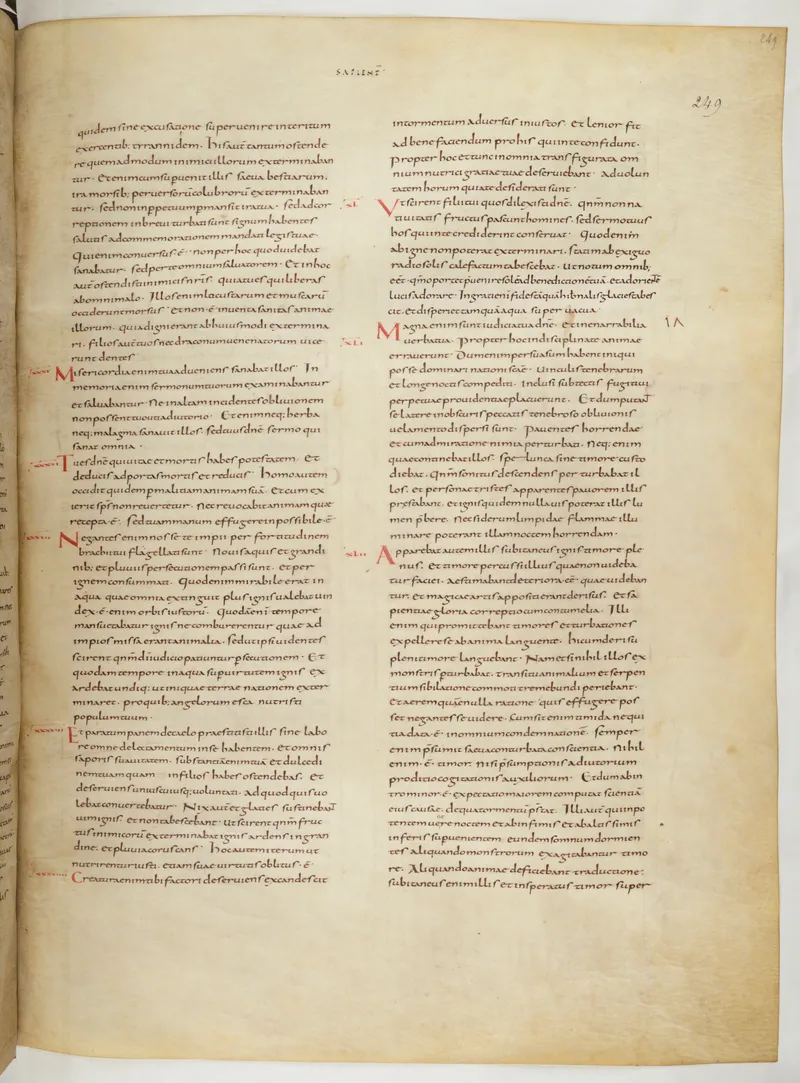 SAPIENT̄
249
249
quidem sine excusatione superuenire interitum
exercentib; tyrannidem. His aut̄ tantum ostende
re quemadmodum inimici illorum exterminaban
tur. Etenim cum superuenit illis saeua bestiarum
ira morsib; peruersorū colubrorū exterminaban
tur. sed non in perpetuum permansit ira tua. sed ad cor
reptionem in breui turbati sunt signum habentes
salutis ad commemorationem mandati legis tuae
Qui enim conuersus ē. non per hoc quod uidebat
sanabatur. sed per te omnium saluatorem. Et in hoc
aut̄ ostendisti inimicis nr̄is. quia tu es qui liberas
ab omni malo. Illos enim lucustarum et muscarū
occiderunt morsus. et non ē inuenta sanitas animae
illorum. quia digni erant ab huiusmodi extermina
ri. filios aut̄ tuos nec draconum uenenatorum uice
runt dentes
Misericordia enim tua adueniens sanabat illos. In
memoria enim sermonum tuorum examinabantur
et saluabantur. Ne in altam incidentes obliuionem
non possent tuo uti adiutorio. Etenim neq; herba
neq; malagma sanauit illos. sed tuus dn̄e sermo qui
sanat omnia.
Tu es dn̄e qui uitae et mortis habes potestatem. et
deducis ad portas mortis et reducis. Homo autem
occidit quidem per malitiam animam suā. Et cum ex
ierit sp̄s non reuertetur. Nec reuocabit animam quae
recepta ē. sed tuam manum effugere inpossibile ē.
Negantes enim nosse te impii per fortitudinem
brachii tui flagellati sunt. Nouis aquis et grandi
nib; et pluuiis persecutionem passi sunt. et per
ignem consummati. Quod enim mirabile erat in
aqua quae omnia extinguit plus ignis ualebat uin
dex ē enim orbis iustorū. Quodā enī tempore
mansuetabatur ignis ne comburerentur quae ad
impios missa erant animalia. sed ut ipsi uidentes
scirent qn̄m dī iudicio patiuntur persecutionem. Et
quodam tempore in aqua supra uirtutem ignis ex
ardebat undiq; ut iniquae terrae nationem exter
minaret. pro quib; angelorum esca nutristi
populum tuum.
Et paratum panem de caelo praestitisti illis sine labo
re omne delectamentum in se habentem. et omnis
saporis suauitatem. substantiā enim tuā et dulcedi
nem tuam quam in filios habes ostendebas. et
deseruiens uniuscuiusq; uoluntati. ad quod quisuo
lebat conuertebatur. Nix aut̄ et glacies sustinebat
uim ignis. et non tabescebant. Ut scirent qn̄m fruc
tus inimicorū exterminabat ignis ardens in gran
dine. et pluuia coruscans. Hoc autem iterum ut
nutrirentur iusti. etiam suae uirtutis oblitus ē.
Creatura enim tibi factori deseruiens excandescit
in tormentum aduersus iniustos. et lenior fit
ad bene faciendum pro his qui in te confidunt.
propter hoc et tunc in omnia transfigurata om
nium nutrici gratiae tuae deseruiebant. ad uolun
tatem horum qui a te desiderati sunt.
Ut scirent filii tui quos dilexisti dn̄e. qn̄m non na
tiuitatis fructus pascunt homines. sed sermo tuus
hos qui in te crediderint conseruat. Quod enim
ab igne non poterat exterminari. statim ab exiguo
radio solis calefactum tabescebat. Ut notum omnib;
eēt. qm̄ oportet p̄uenire solē ad benedictionē tuā. et ad ortū
lucis adorare. Ingrati eni fides tāquā hibnal̄ glacies tabes
cit. et disperiet tamquā aqua superuacua.
Magna enim sunt iudicia tua dn̄e. et inenarrabilia
uerba tua. propter hoc indisciplinatae animae
errauerunt. Dum enim persuasum habent iniqui
posse dominari nationi scāe. Uinculis tenebrarum
et longe noctis compediti. inclusi sub tectis fugitiui
perpetuae prouidentiae placuerunt. Et dum putant
se latere in obscuris peccatis tenebroso obliuionis
uelamento dispersi sunt. Pauentes horrendae
et cum admiratione nimia perturbati. Neq; enim
quae continebat illos. spelunca sine timore custo
diebat. Qn̄m sonitus descendens perturbabat il
los. et personae tristes apparentes pauorem illis
prestabant. et ignis quidem nulla uis poterat illis lu
men p̄bere. Nec siderum limpidae flammae illu
minare poterant illam noctem horrendam.
Apparebat autem illis subitaneus ignis timore ple
nus. Et timore perculsi illius quae non uideba
tur faciei. aestimabant deteriora eē. quae uideban
tur. et magicae artis appositi erant derisus. et sa
pientiae gloria correptio cum contumelia. Illi
enim qui promittebant timores et turbationes
expellere se ab anima languente. hi cum derisu
pleni timore languebant. Nam et si nihil illos ex
monstris perturbabat. transitu animalium et serpen
tium sibilatione commoti tremebundi peribant.
Et aerem quā enī nulla ratione quis effugere pos
set negantes se uidere. Cum sit enim timida nequi
tia data ē in omnium condemnationē. Semper
enim p̄sumit saeua conturbata conscientia. Nihil
enim ē timor. nisi p̄sumptionis adiutorium
proditio cogitationis auxiliorum. Et dum ab in
tro minor ē expectatio maiorem computat scientiā
eius causae. de qua tormentū p̄stat. Illi aut̄ qui inpo
tentem uere noctem et ab infimis et ab altissimis
inferis superuenientem. eundem somnum dormien
tes aliquando monstrorum exagitabantur timo
re. Aliquando animae deficiebant traductione.
subitaneus enim illis et insperatus timor super